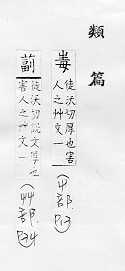 類篇
毒
徒沃切厚也害
人之艸文一
(屮部P13)
徒沃切說文厚也
害人之艸文一
(艸部P34)